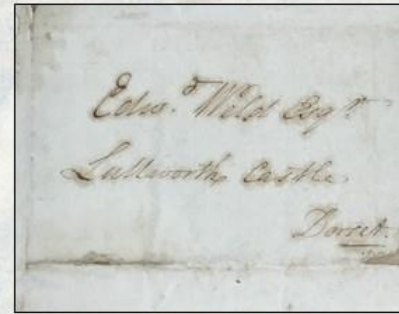 Edwd. Wild Esqr.
Lullworth Castle
Dorset.